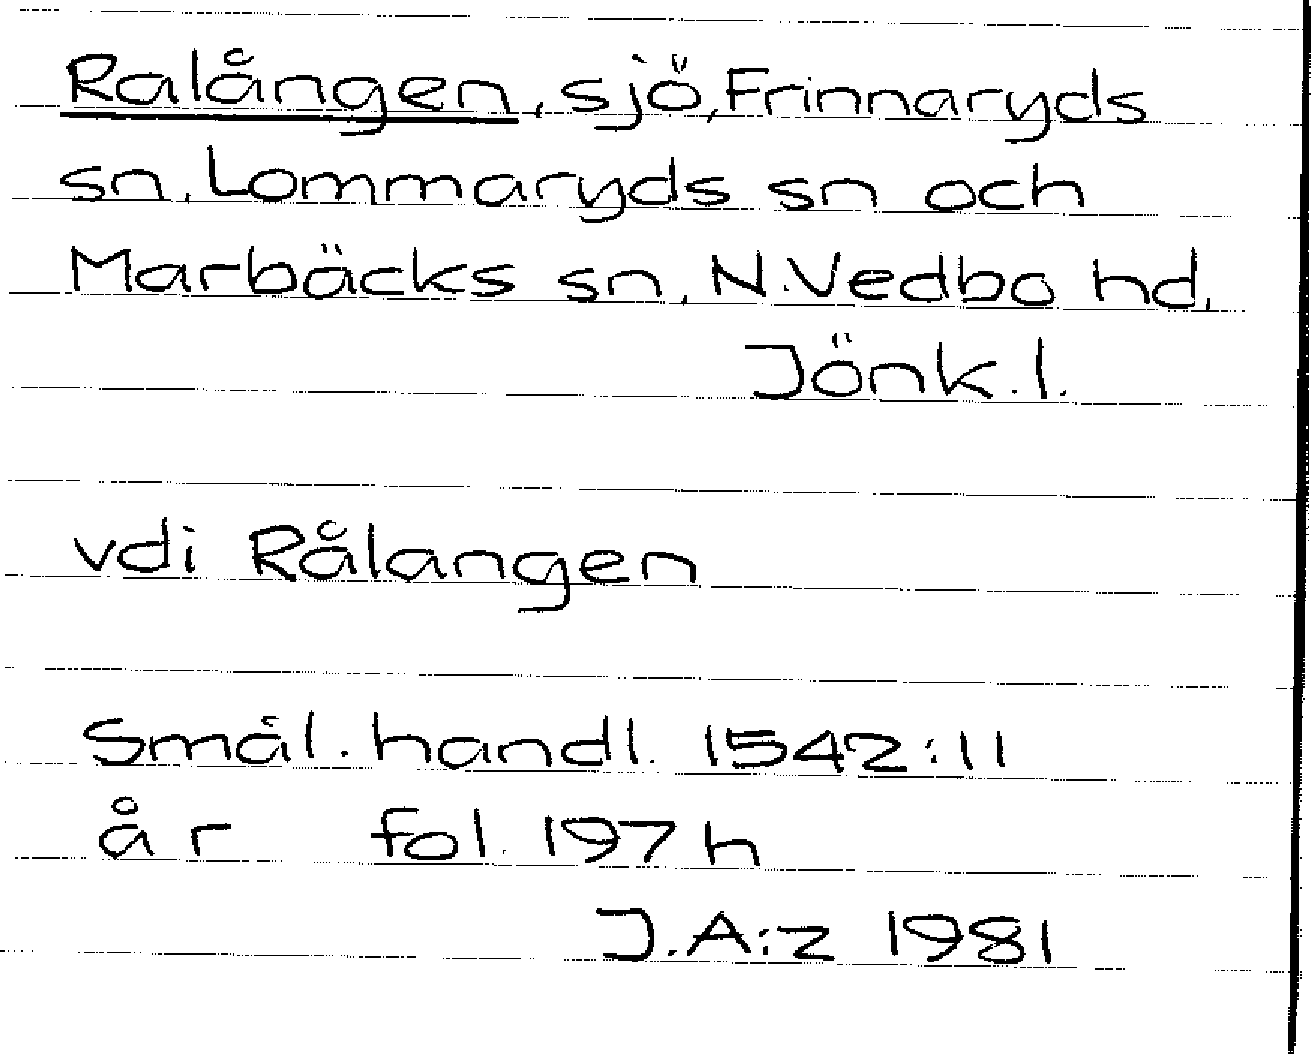 Ralången, sjö, Frinnaryds
sn, Lommaryds sn och
Marbäcks sn, N. Vedbo hd,
Jönk. l.
vdi Rålangen
Smål. handl. 1542:11
år fol. 197 h
J.A:z 1981